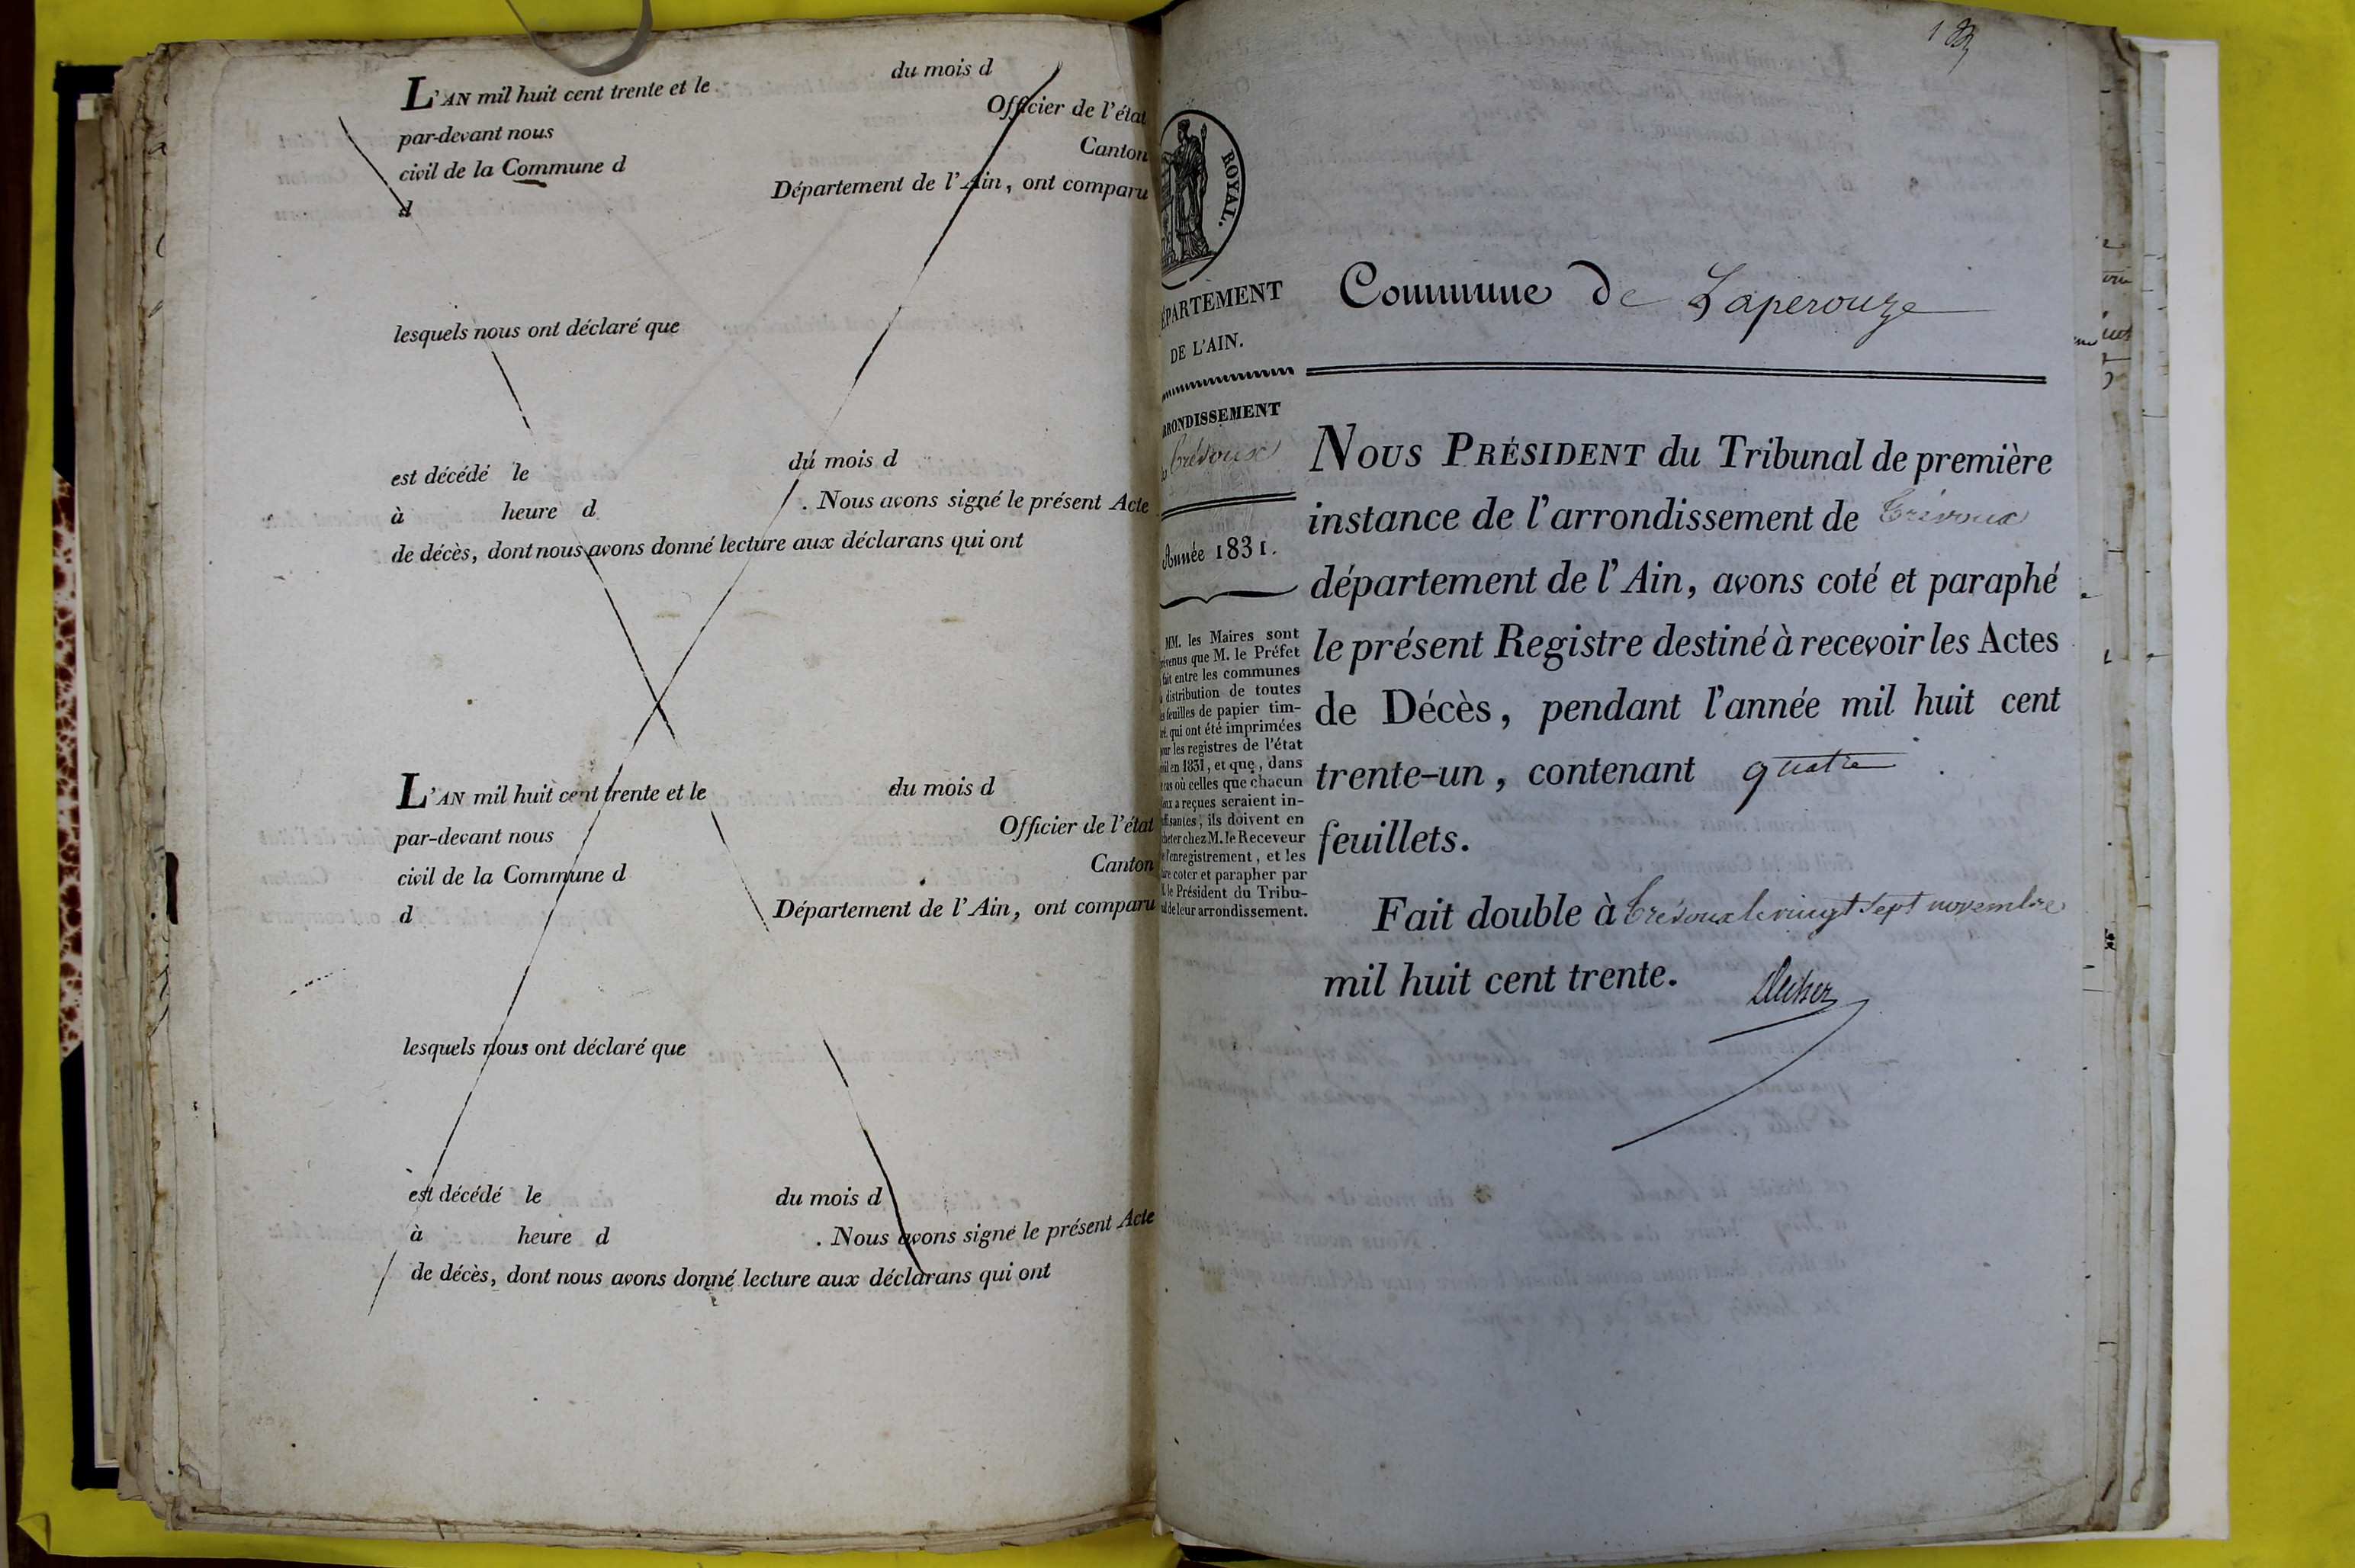 L'AN mil huit cent trente et le du mois d
par-devant nous Officier de l'état
civil de la Commune d Canton
d Département de l'Ain, ont comparu
lesquels nous ont déclaré que
est décédé le du mois d
à heure d . Nous avons signé le présent Acte
de décès, dont nous avons donné lecture aux déclarans qui ont
L'AN mil huit cent trente et le du mois d
par-devant nous Officier de l'état
civil de la Commune d Canton
d Département de l'Ain, ont comparu
lesquels nous ont déclaré que
est décédé le du mois d
à heure d . Nous avons signé le présent Acte
de décès, dont nous avons donné lecture aux déclarans qui ont
ROYAL.
ÉPARTEMENT
DE L'AIN.
RRONDISSEMENT
Trévoux
Année 1831.
MM. les Maires sont
évenus que M. le Préfet
fait entre les communes
distribution de toutes
feuilles de papier tim-
qui ont été imprimées
les registres de l'état
en 1831, et que, dans
cas où celles que chacun
a reçues seraient in-
ffisantes, ils doivent en
cheter chez M. le Receveur
l'enregistrement, et les
coter et parapher par
le Président du Tribu-
de leur arrondissement.
Commune de Laperouze
NOUS PRÉSIDENT du Tribunal de première
instance de l'arrondissement de Trévoux
département de l'Ain, avons coté et paraphé
le présent Registre destiné à recevoir les Actes
de Décès, pendant l'année mil huit cent
trente-un, contenant quatre
feuillets.
Fait double à Trévoux le vingt sept novembre
mil huit cent trente.